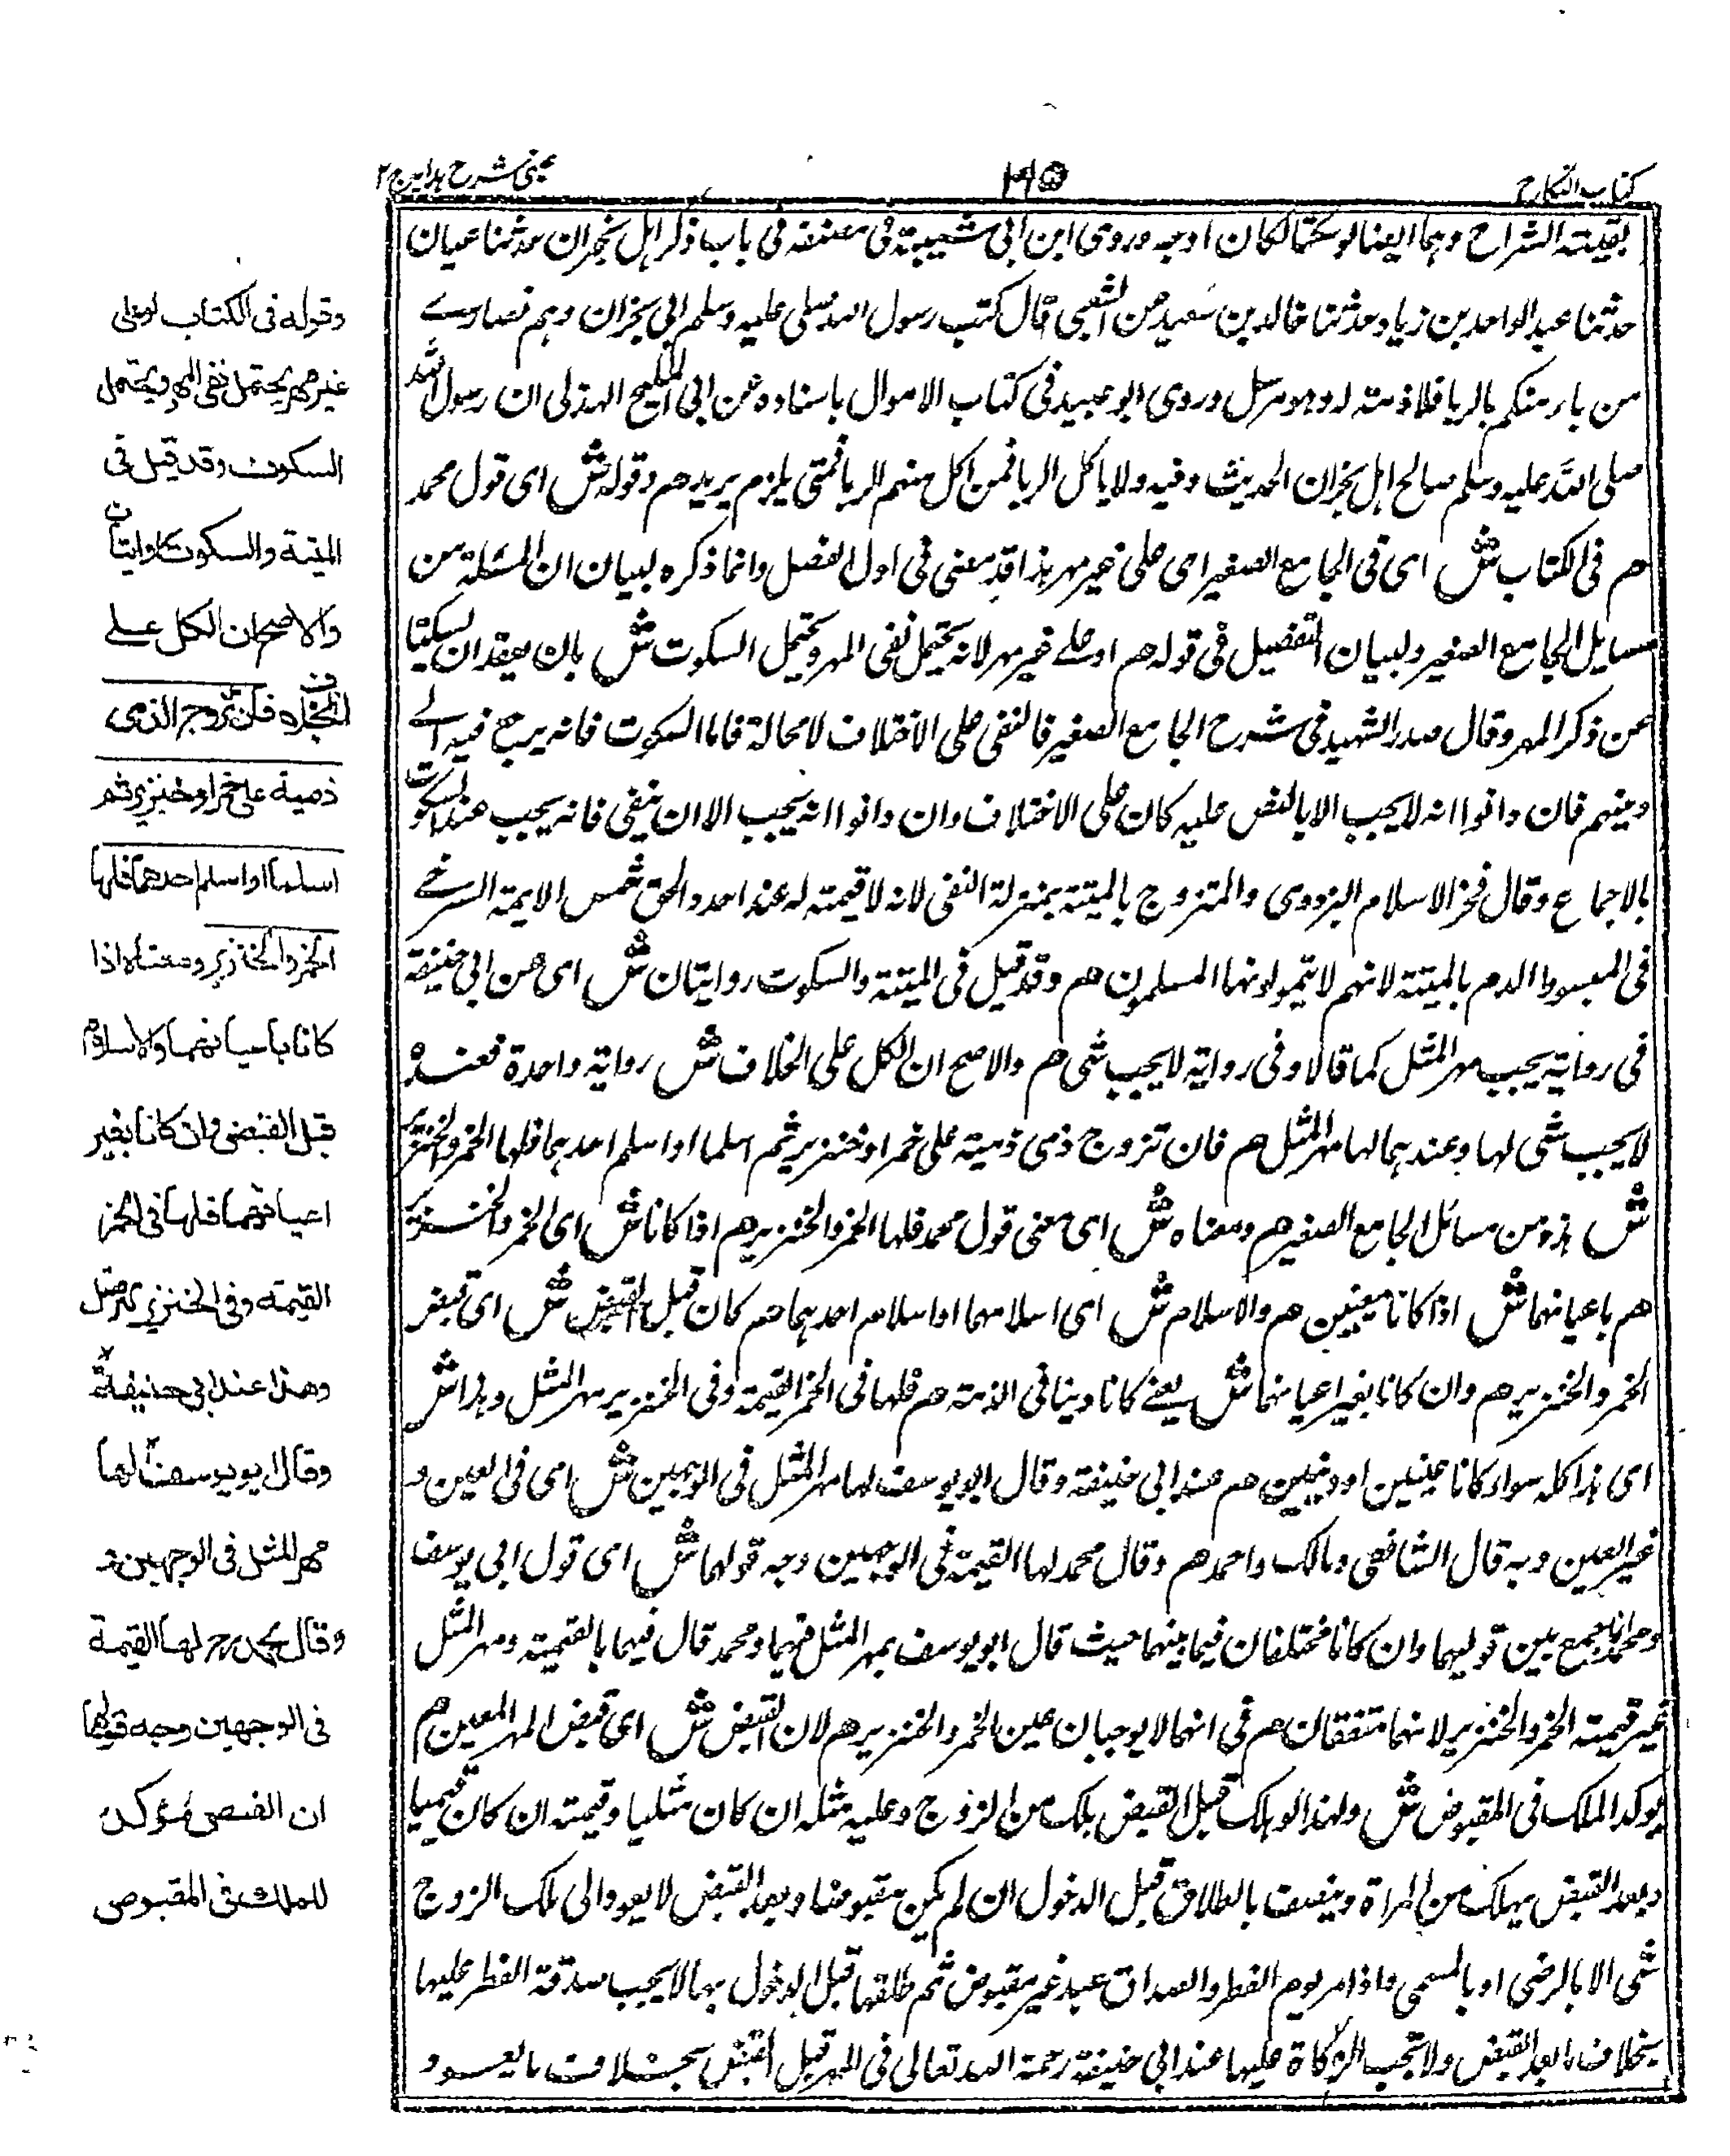 كتاب النكاح
١٦٥
عینی شرح ہدایہ ج ٢
بقية الشراح وهما ايضا لو سكتا لكان اوجه وروى ابن ابي شيبة في مصنفه في باب ذكر اهل نجران حدثنا عفان
حدثنا عبد الواحد بن زياد حدثنا خالد بن سعيد عن الشعبي قال كتب رسول الله صلى عليه وسلم الى نجران وهم نصارے
من بار منكم بالربا فلا ذمة له وهو مرسل وروى ابو عبيد في كتاب الاموال باسناده عن ابي المليح الهذلي ان رسول الله
صلى الله عليه وسلم صالح اهل نجران الحديث وفيه ولا ياكل الربا فمن اكل منهم الربا فمتى يلزم يريد هم وقوله ش اى قول محمد
هم في الكتاب ش اى في الجامع الصغير اى على غير مهر هذا قد معنى في اول الفصل وانما ذكره لبيان ان المسئلة من
مسايل الجامع الصغير ولبيان التفصيل في قوله هم او على غير مهر لانه يحتمل نفى المهر ويحتمل السكوت ش بان يعقد ان سكتا
عن ذكر المهر وقال صدر الشهيد في شرح الجامع الصغير فالنفى على الاختلاف لا محالة فاما السكوت فانه يرجع فيه الے
دينهم فان دانوا انه لا يجب الا بالنص عليه كان على الاختلاف وان دانوا انه يجب الا ان ينفى فانه يجب عند السكوت
بالاجماع وقال فخر الاسلام البزدوى والمتزوج بالميتة بمنزلة النفى لانه لا قيمته له عند احد والحق شمس الايمة السرخسے
في المبسوط الدم بالميتة لانهم لا يتمولونها المسلمون هم وقد قيل في الميتة والسكوت روايتان ش اى عن ابي حنيفة
في رواية يجب مهر المثل كما قالا وفي رواية لا يجب شى هم والاصح ان الكل على الخلاف ش رواية واحدة فعنده
لا يجب شى لها وعندهما لها مهر المثل هم فان تزوج ذمى ذمية على خمر او خنزير ثم اسلما او اسلم احدهما فلها الخمر والخنزير
ش هذه من مسائل الجامع الصغير هم ومعناه ش اى معنى قول محمد فلها الخمر والخنزير هم اذا كانا ش اى الخمر والخنزير
هم باعيانهما ش اذا كانا معينين هم والاسلام ش اى اسلامهما او اسلام احدهما هم كان قبل القبض ش اى قبض
الخمر والخنزير هم وان كانا بغير اعيانهما ش يعنے كانا دينا في الذمة هم فلها في الخمر القيمة وفي الخنزير مهر المثل وهذا ش
اى هذا كله سواء كانا عينين او دينين هم عند ابي حنيفة وقال ابو يوسف لها مهر المثل في الوجهين ش اى في العين و
غير العين وبه قال الشافعى ومالك واحمد هم وقال محمد لها القيمة في الوجهين وجه قولهما ش اى قول ابي يوسف
ومحمد انما جمع بين قوليهما وان كانا مختلفان فيما بينهما حيث قال ابو يوسف بمهر المثل فيهما ومحمد قال فيهما بالقيمته ومهر المثل
غير قيمته الخمر والخنزير لانهما متفقان هم في انهما لا يوجبان عين الخمر والخنزير هم لان القبض ش اى قبض المهر المعين هم
يوكد الملك في المقبوض ش ولهذا لو هلك قبل القبض هلك من الزوج وعليه مثله ان كان مثليا وقيمته ان كان قيميا
وبعد القبض يهلك من المراة وينصف بالطلاق قبل الدخول ان لم يكن مقبوضا وبعد القبض لا يعود الى ملك الزوج
شى الا بالرضى او بالمسمى واذا مر يوم الفطر والصداق عبد غير مقبوض ثم طلقها قبل الدخول بها لا يجب صدقة الفطر عليها
بخلاف ما بعد القبض ولا تجب الزكاة عليها عند ابي حنيفة رحمة الله تعالى في المهر قبل القبض بخلاف ما يعود و
وقوله في الكتاب او على
غير مهر يحتمل نفى المهر ويحتمل
السكوت وقد قيل في
الميتة والسكوت روايتان
والاصح ان الكل على
الخلاف فان تزوج الذمى
ذمية على خمر او خنزير ثم
اسلما او اسلم احدهما فلها
الخمر والخنزير ومعناه اذا
كانا باعيانهما والاسلام
قبل القبض وان كانا بغير
اعيانهما فلها في الخمر
القيمة وفي الخنزير مهر المثل
وهذا عند ابي حنيفة رح
وقال ابو يوسف رح لها
مهر المثل في الوجهين و
وقال محمد رح لها القيمة
في الوجهين وجه قولهما
ان القبض مؤكد
للملك في المقبوض